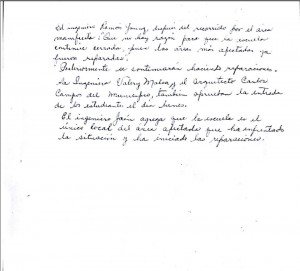 El ingeniero Ramón Young, después del recorrido por el área
manifestó: Que no hay razón para que la escuela
continúe cerrada, pues las áreas más afectadas ya
fueron reparadas.
Posteriormente se continuarán haciendo reparaciones.
La Ingeniera Valery Maloney, el Arquitecto Carlos
Campos del Municipio, también aprueban la entrada
de los estudiantes el día lunes.
El ingeniero Jaén agrega que la escuela es el
único local del área afectada que ha enfrentado
la situación y ha iniciado las reparaciones.